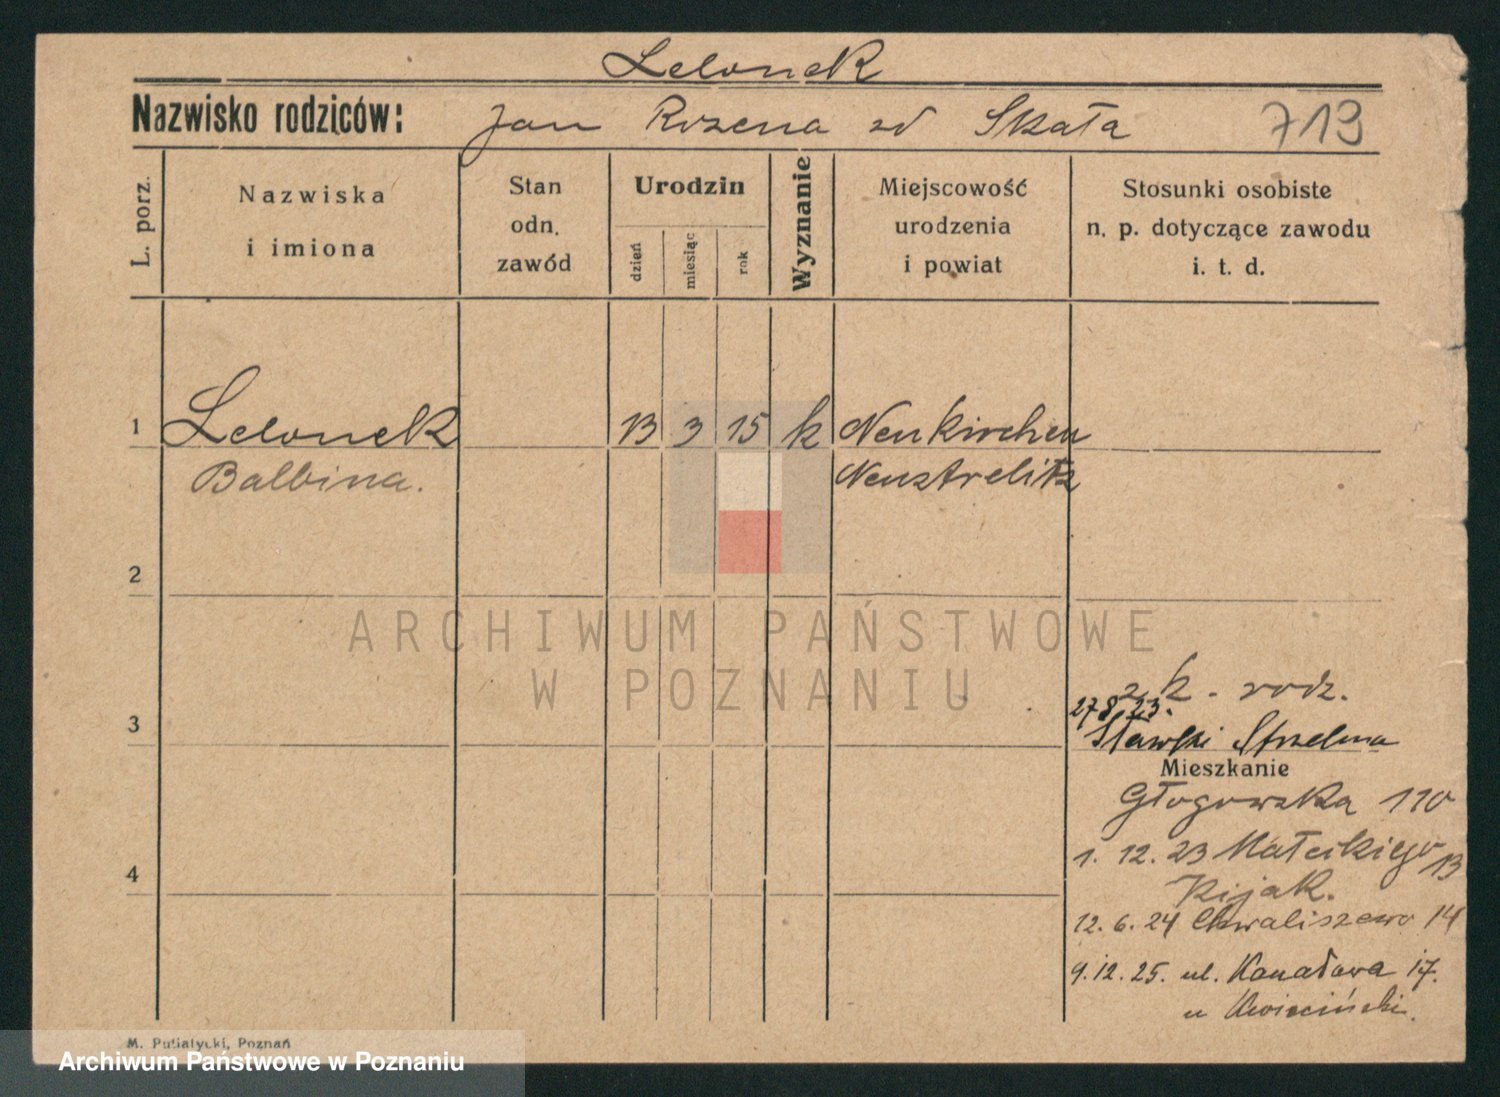 Lelonek
Nazwisko rodziców: Jan Rozena zd Skała 713
L. porz.
Nazwiska
i imiona
Stan
odn.
zawód
Urodzin
dzień
miesiąc
rok
Wyznanie
Miejscowość
urodzenia
i powiat
Stosunki osobiste
n. p. dotyczące zawodu
i. t. d.
1 Lelonek 13 3 15 k Neukirchen
Balbina. Neustrelitz
2
z k. rodz.
27 8 23.
3
Sławski Strzelma
Mieszkanie
Głogowska 110
1. 12. 23 Małeckiego 13
4
Kijak.
12. 6. 24 Chwaliszewo 14
9. 12. 25. ul. Kanałowa 17.
u Kwieciński.
M. Putiatycki, Poznań
ARCHIWUM PAŃSTWOWE
W POZNANIU
Archiwum Państwowe w Poznaniu